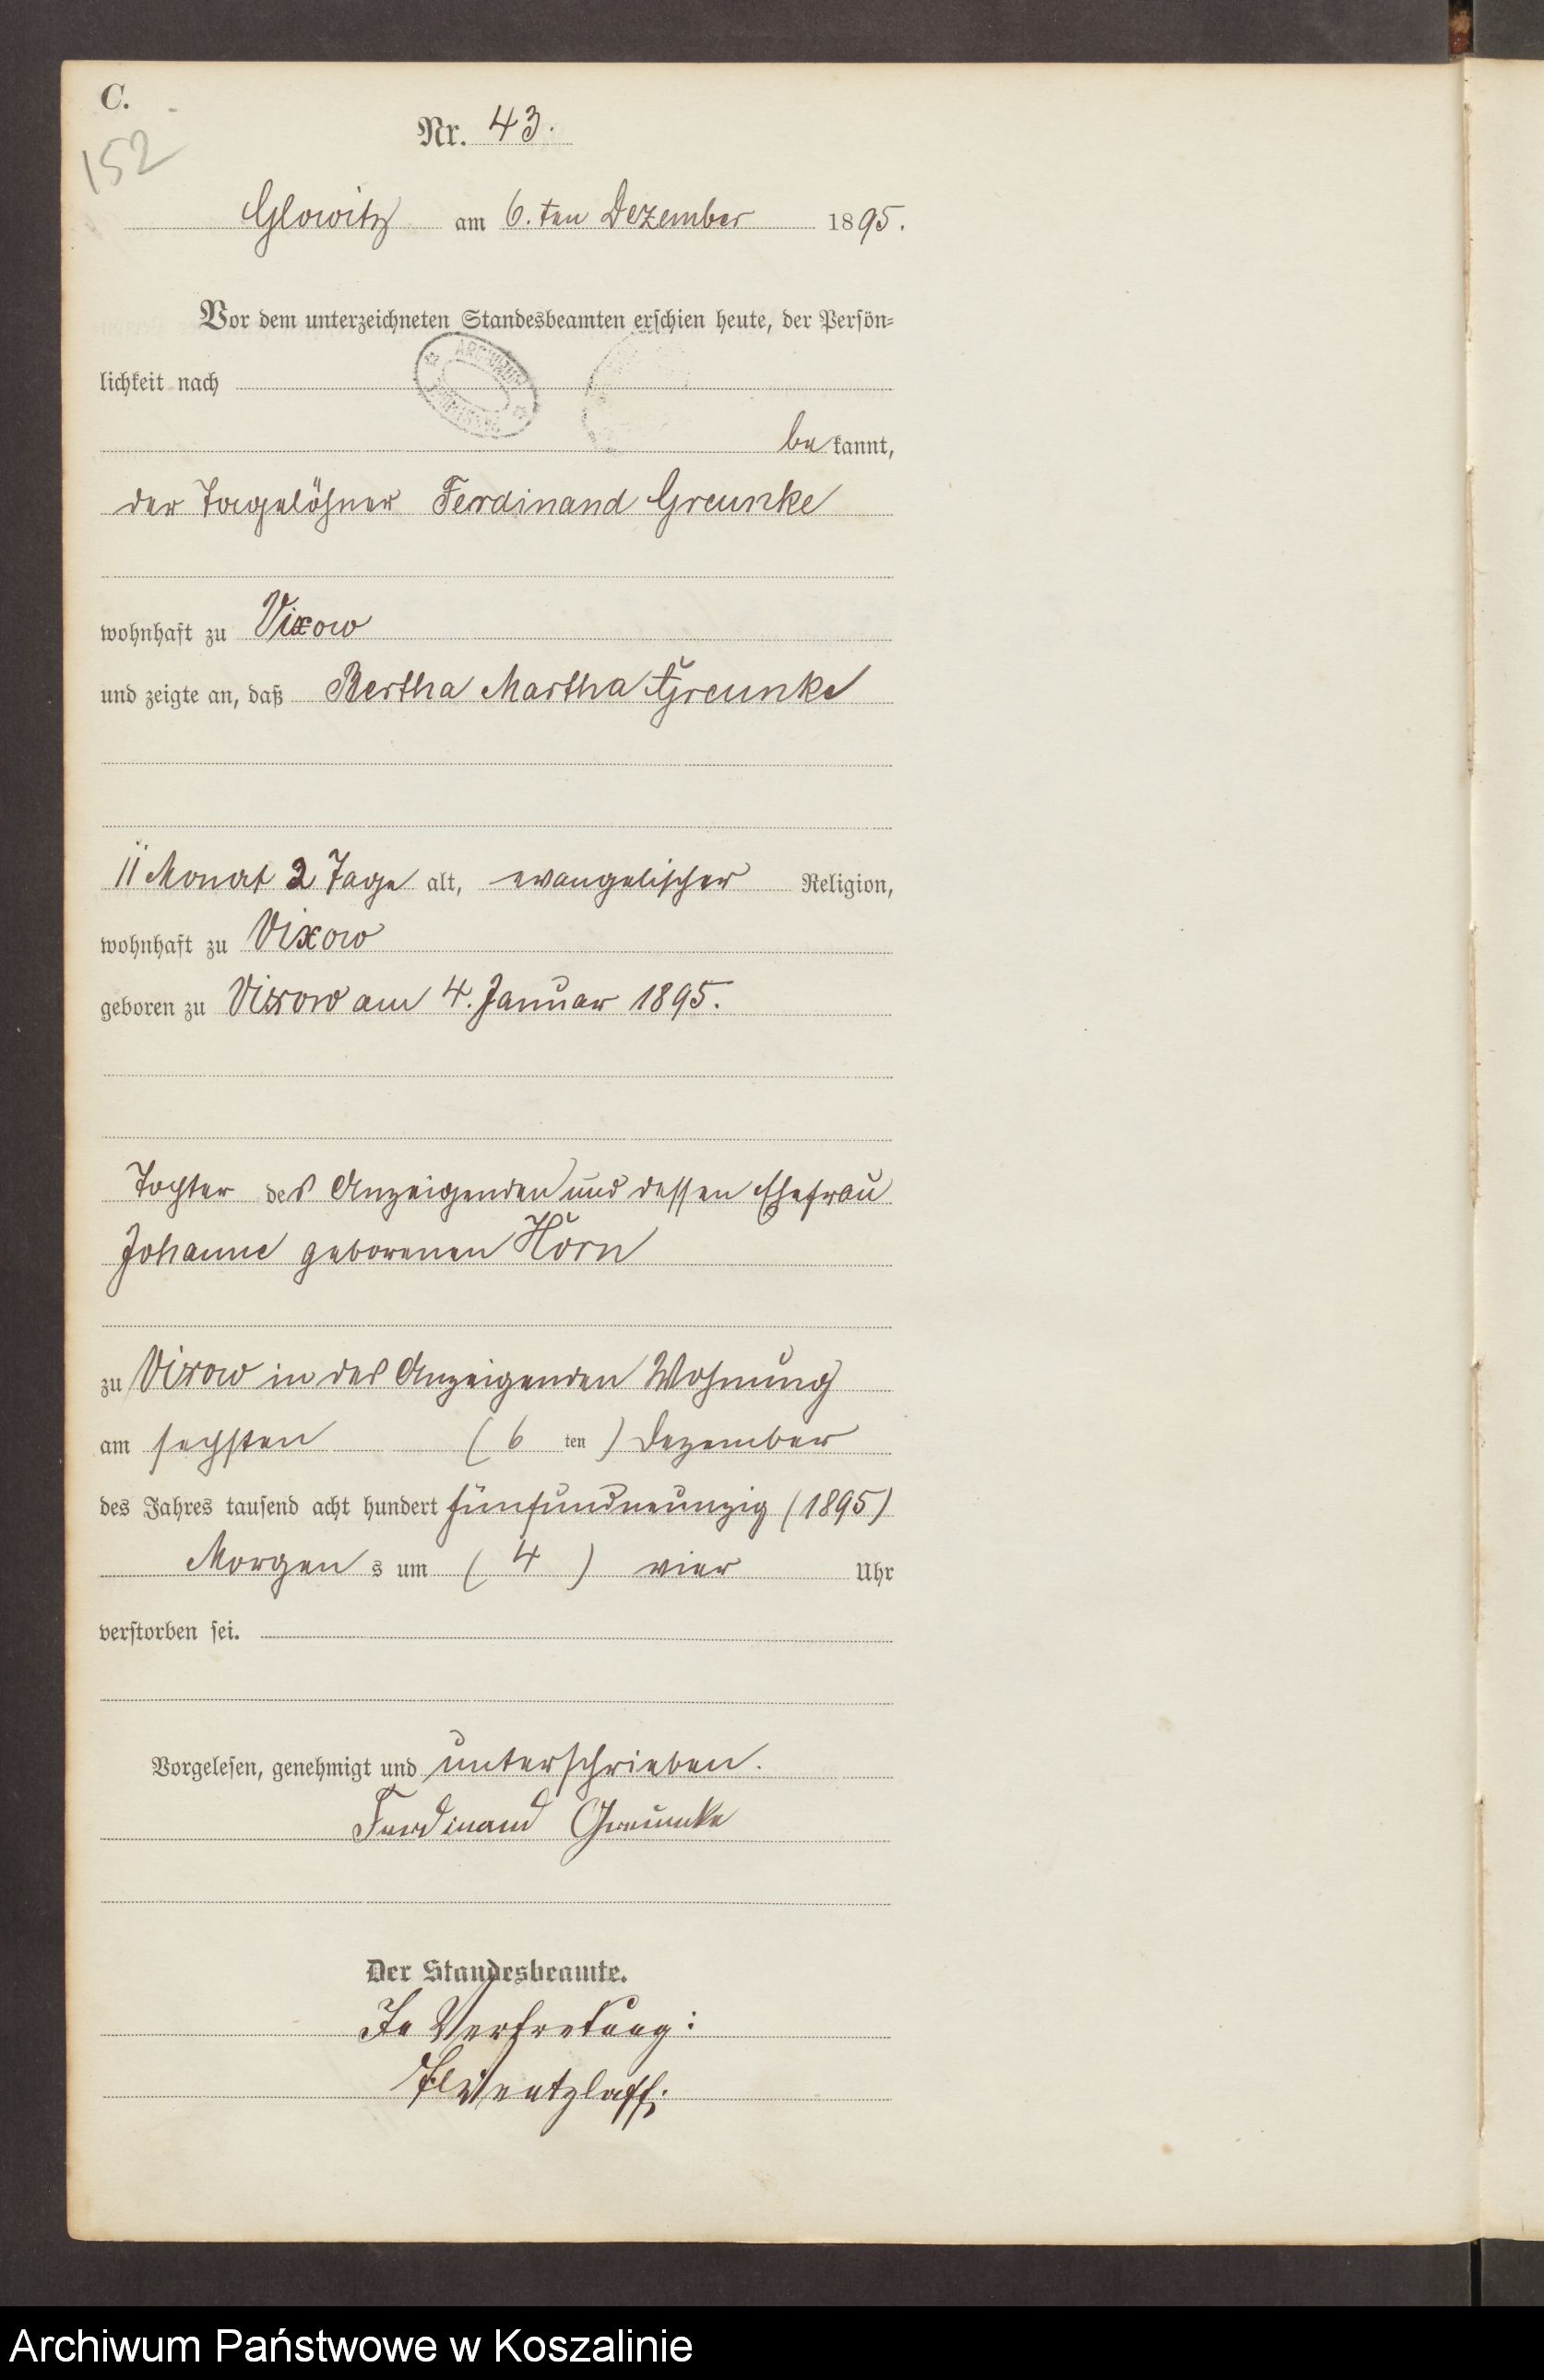 C.
152
Nr. 43.
Glowitz am 6. ten Dezember 1895.
Vor dem unterzeichneten Standesbeamten erschien heute, der Persön-
lichkeit nach
be kannt,
der Tagelöhner Ferdinand Greunke
wohnhaft zu Vixow
und zeigte an, daß Bertha Martha Greunke
11 Monat 2 Tage alt, evangelischer Religion,
wohnhaft zu Vixow
geboren zu Vixow am 4. Januar 1895.
Tochter des Anzeigenden und dessen Ehefrau
Johanne geborenen Horn
zu Vixow in des Anzeigenden Wohnung
am sechsten (6 ten) Dezember
des Jahres tausend acht hundert fünfundneunzig (1895)
Morgen s um (4) vier Uhr
verstorben sei.
Vorgelesen, genehmigt und unterschrieben.
Ferdinand Greunke
Der Standesbeamte.
In Vertretung:
Wentzlaff.
Archiwum Państwowe w Koszalinie